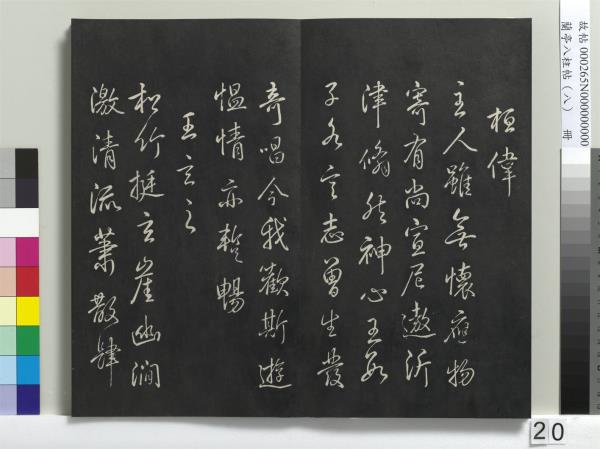 桓偉
主人雖無懷應物
寄有尚宣尼遨沂
津翛然神心王數
子各言志曽生發
奇唱今我歡斯遊
愠情亦蹔暢
王玄之
松竹挺玄崖幽澗
激清流蕭散肆
故帖 000265N000000000
蘭亭八柱帖(八) 冊
20